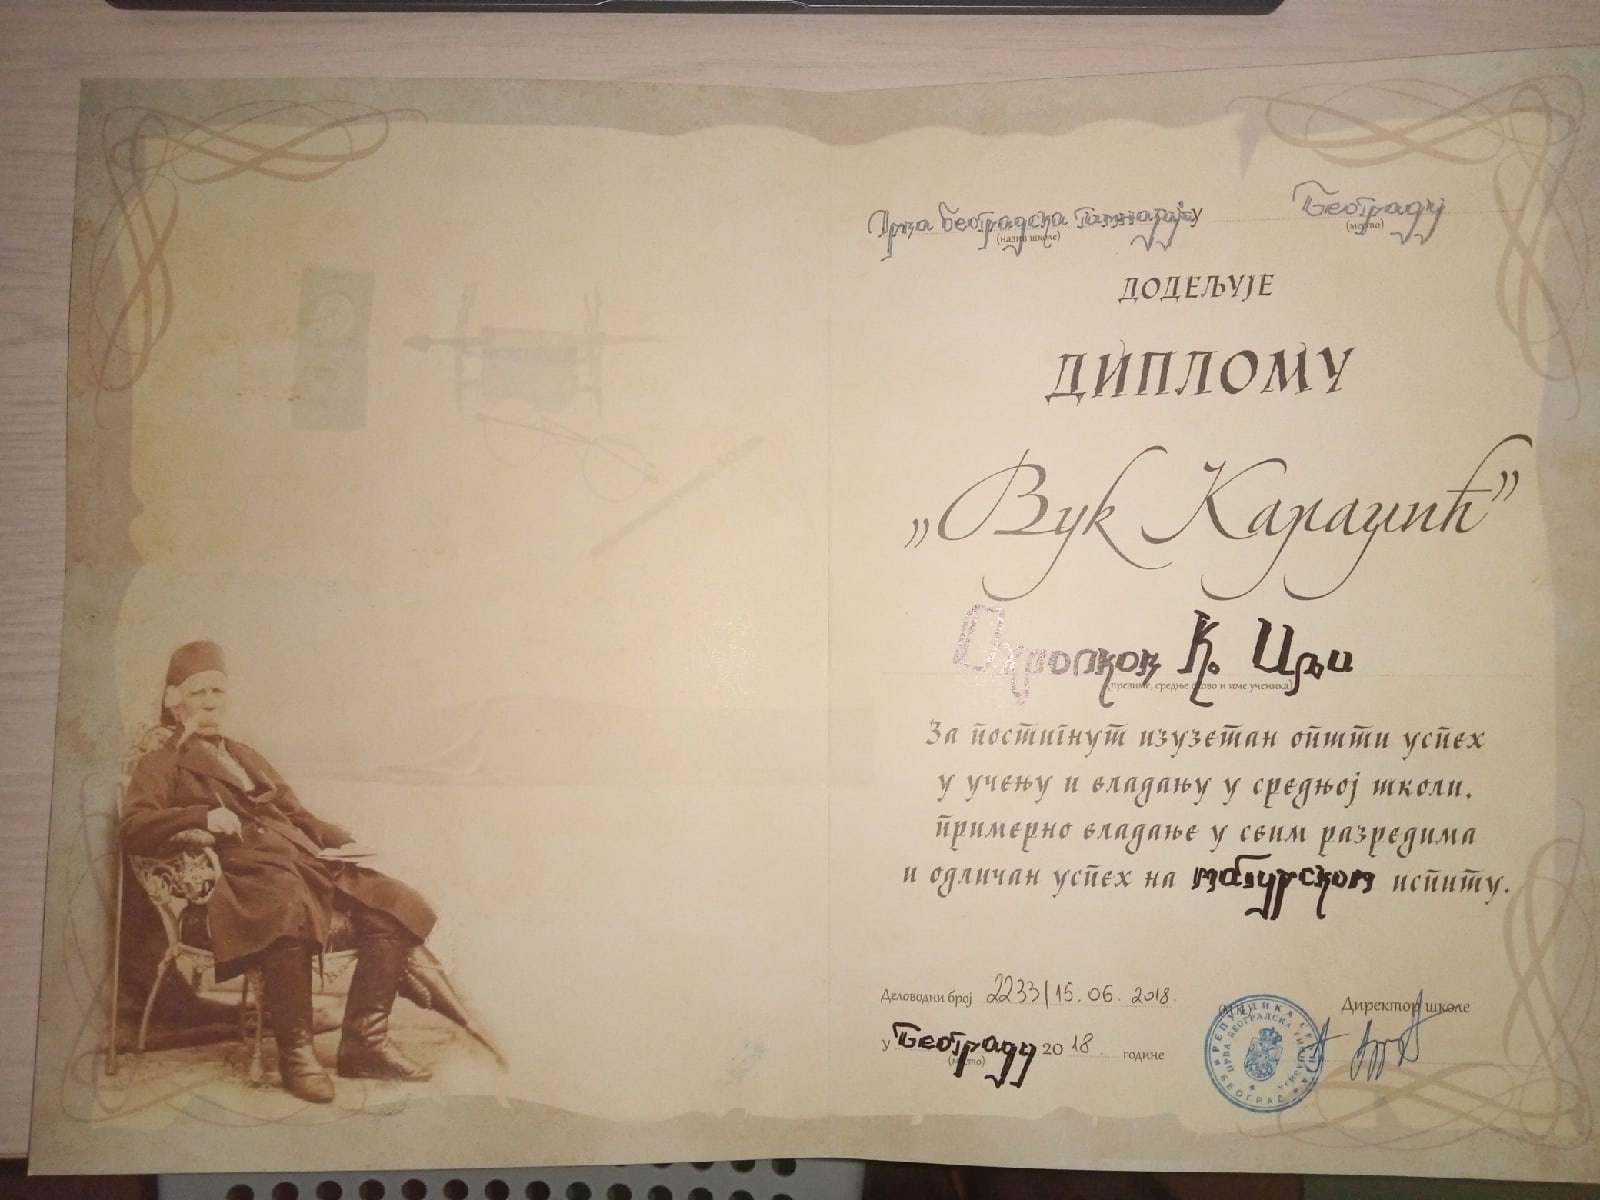 Прва београдска гимназија у Београду
(назив школе) (место)
ДОДЕЉУЈЕ
ДИПЛОМУ
„Вук Караџић”
К. Иља
(презиме, средње слово и име ученика)
За постигнут изузетан општи успех
у учењу и владању у средњој школи,
примерно владање у свим разредима
и одличан успех на матурском испиту.
Деловодни број 2233/15.06.2018.
(М.П.) Директор школе
у Београду 2018. године
(место)
РЕПУБЛИКА СРБИЈА
ПРВА БЕОГРАДСКА ГИМНАЗИЈА
БЕОГРАД